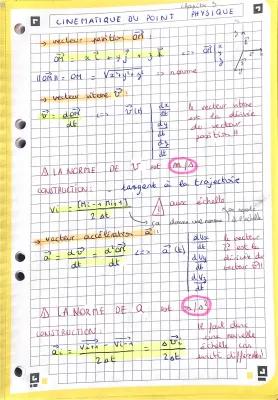 Chapitre 5
CINEMATIQUE DU POINT PHYSIQUE
→ vecteur position OM :
OM = x i + y j + z k <=> OM | x y z
||OM|| = OM = √x²+y²+z² → norme
→ vecteur vitesse v :
v = dOM/dt <=> v(t) | dx/dt dy/dt dz/dt
le vecteur vitesse est la dérivée du vecteur position !!
⚠ LA NORME DE V est m/s
CONSTRUCTION : tangent à la trajectoire
Vi = [Mi-1 Mi+1] / 2Δt
⚠ avec échelle
ça donne une norme
→ vecteur accélération a :
a = dv/dt = d²OM/dt <=> a(t) | dVx/dt dVy/dt dVz/dt
le vecteur a est la dérivée du vecteur v !!
⚠ LA NORME DE a est m/s²
CONSTRUCTION :
ai = Vi+1 - Vi-1 / 2Δt = ΔVi / 2Δt
Il faut donc une nouvelle échelle car unité différente !